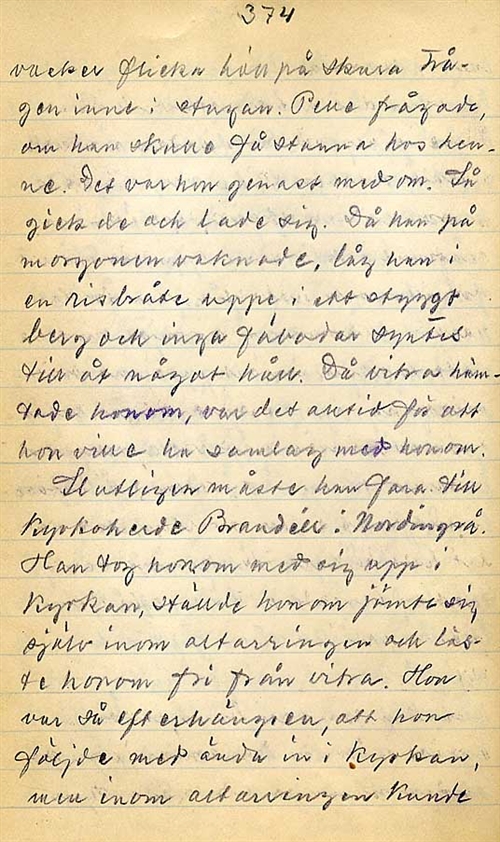 374
vacker flicka höll på skura trå-
gen inne i stugan. Pelle frågade,
om han skulle få stanna hos hen-
ne. Det var hon genast med om. Så
gick de och lade sig. Då han på
morgonen vaknade, låg han i
en risbråte uppe i ett styggt
berg och inga fäbodar syntes
till åt något håll. Då vitra häm-
tade honom, var det alltid för att
hon ville ha samlag med honom.
Slutligen måste han fara till
Kyrkoherde Brandéll i Nordingrå.
Han tog honom med sig upp i
Kyrkan, ställde honom jämte sig
själv inom altarringen och läs-
te honom fri från vitra. Hon
var så efterhängsen, att hon
följde med ända in i Kyrkan,
men inom altarringen Kunde